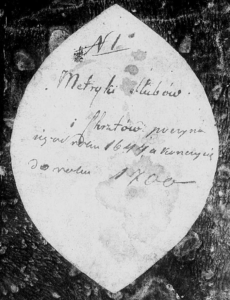 N 1º
Metryki ślubów
i Chrztów poczyna
się od roku 1644 a kończy się
do roku 1700